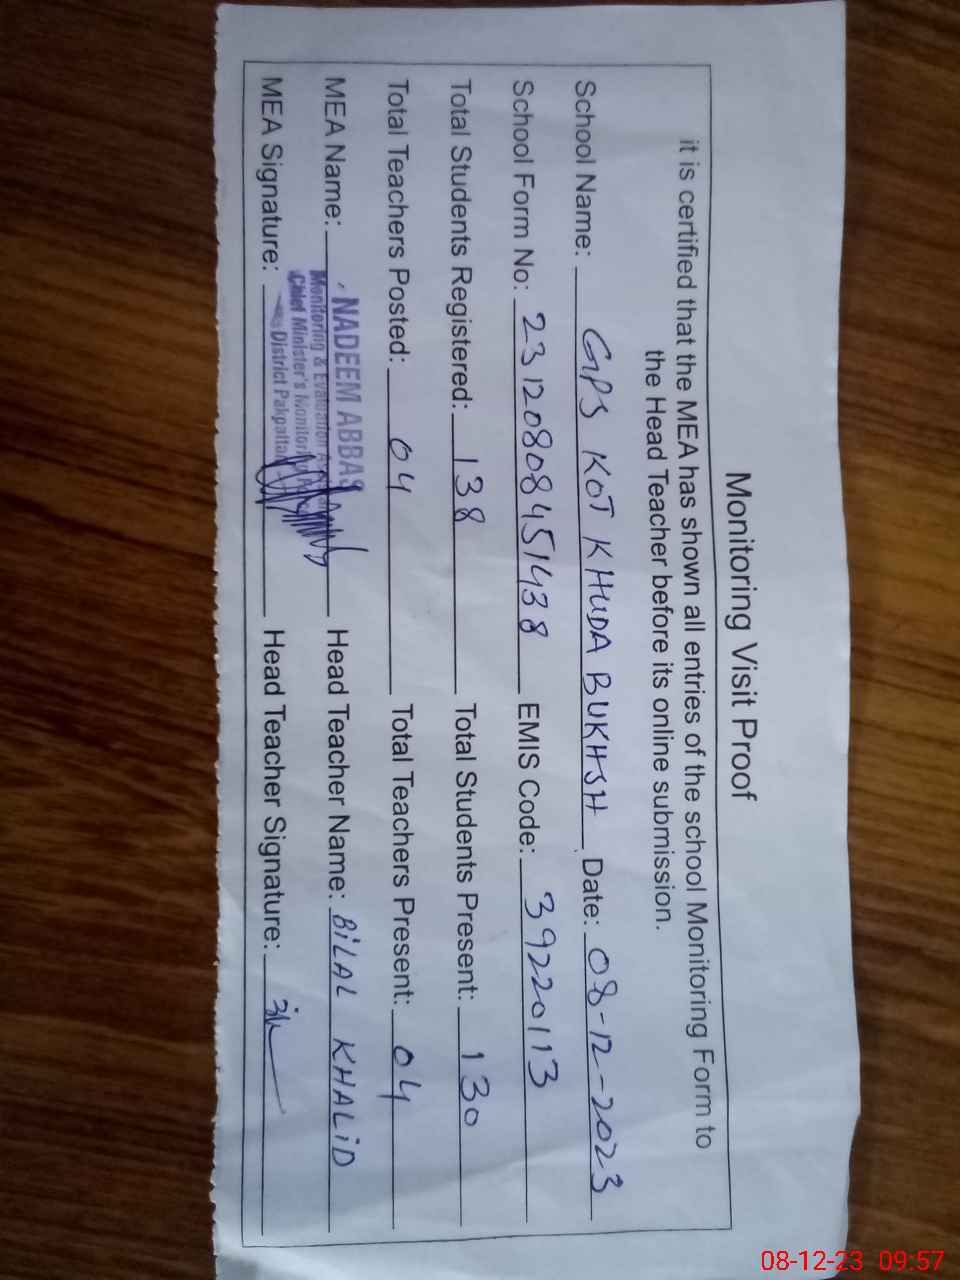 Monitoring Visit Proof
it is certified that the MEA has shown all entries of the school Monitoring Form to
the Head Teacher before its online submission.
School Name: GPS KOT KHUDA BUKHSH Date: 08-12-2023
School Form No: 23120808451438 EMIS Code: 39220113
Total Students Registered: 138 Total Students Present: 130
Total Teachers Posted: 04 Total Teachers Present: 04
MEA Name: NADEEM ABBAS Head Teacher Name: BiLAL KHALiD
Monitoring & Evaluation
Chief Minister's Monitoring
District Pakpattan
MEA Signature: Head Teacher Signature:
08-12-23 09:57